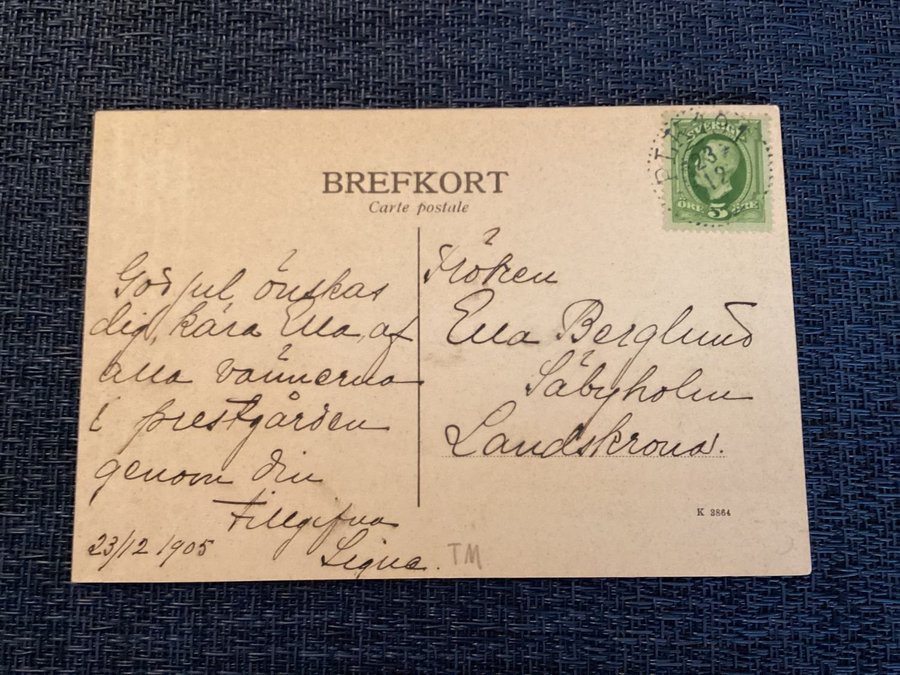 BREFKORT
Carte postale
SVERIGE
23
12
ÖRE 5 ÖRE
God jul önskas
dig, kära Ella, af
alla vännerna
i prestgården
genom din
tillgifna
Signe.
23/12 1905
TM
Fröken
Ella Berglund
Säbyholm
Landskrona.
K 2864